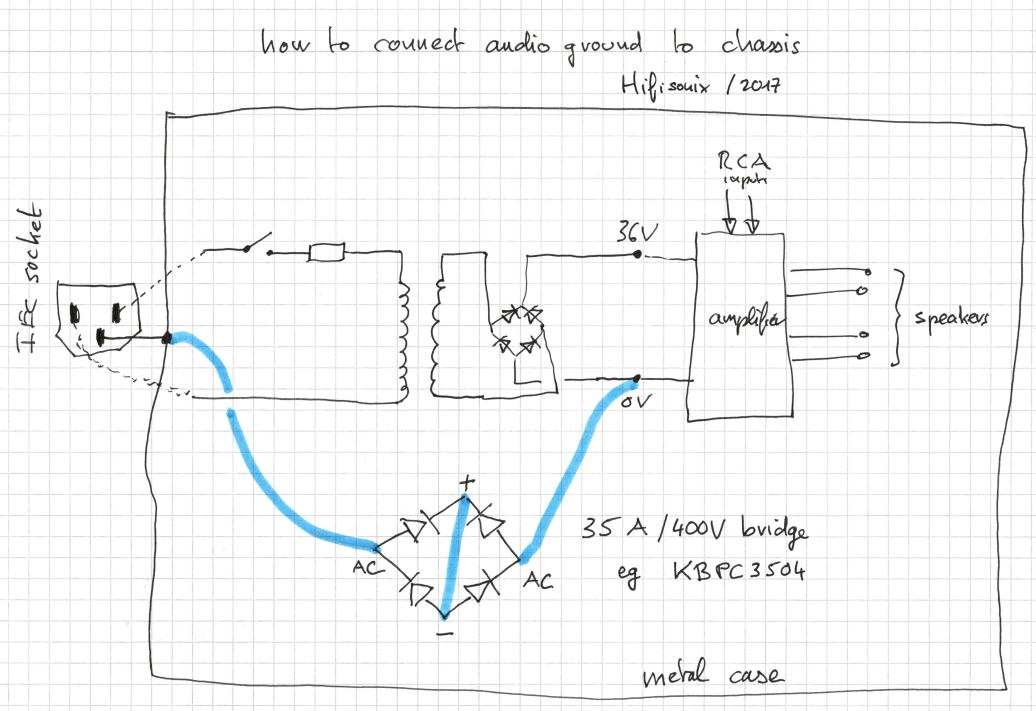 how to connect audio ground to chassis
Hifisonix / 2017
RCA
inputs
IEC socket
36V
amplifier
speakers
0V
+
35 A / 400V bridge
AC
AC
eg KBPC3504
−
metal case